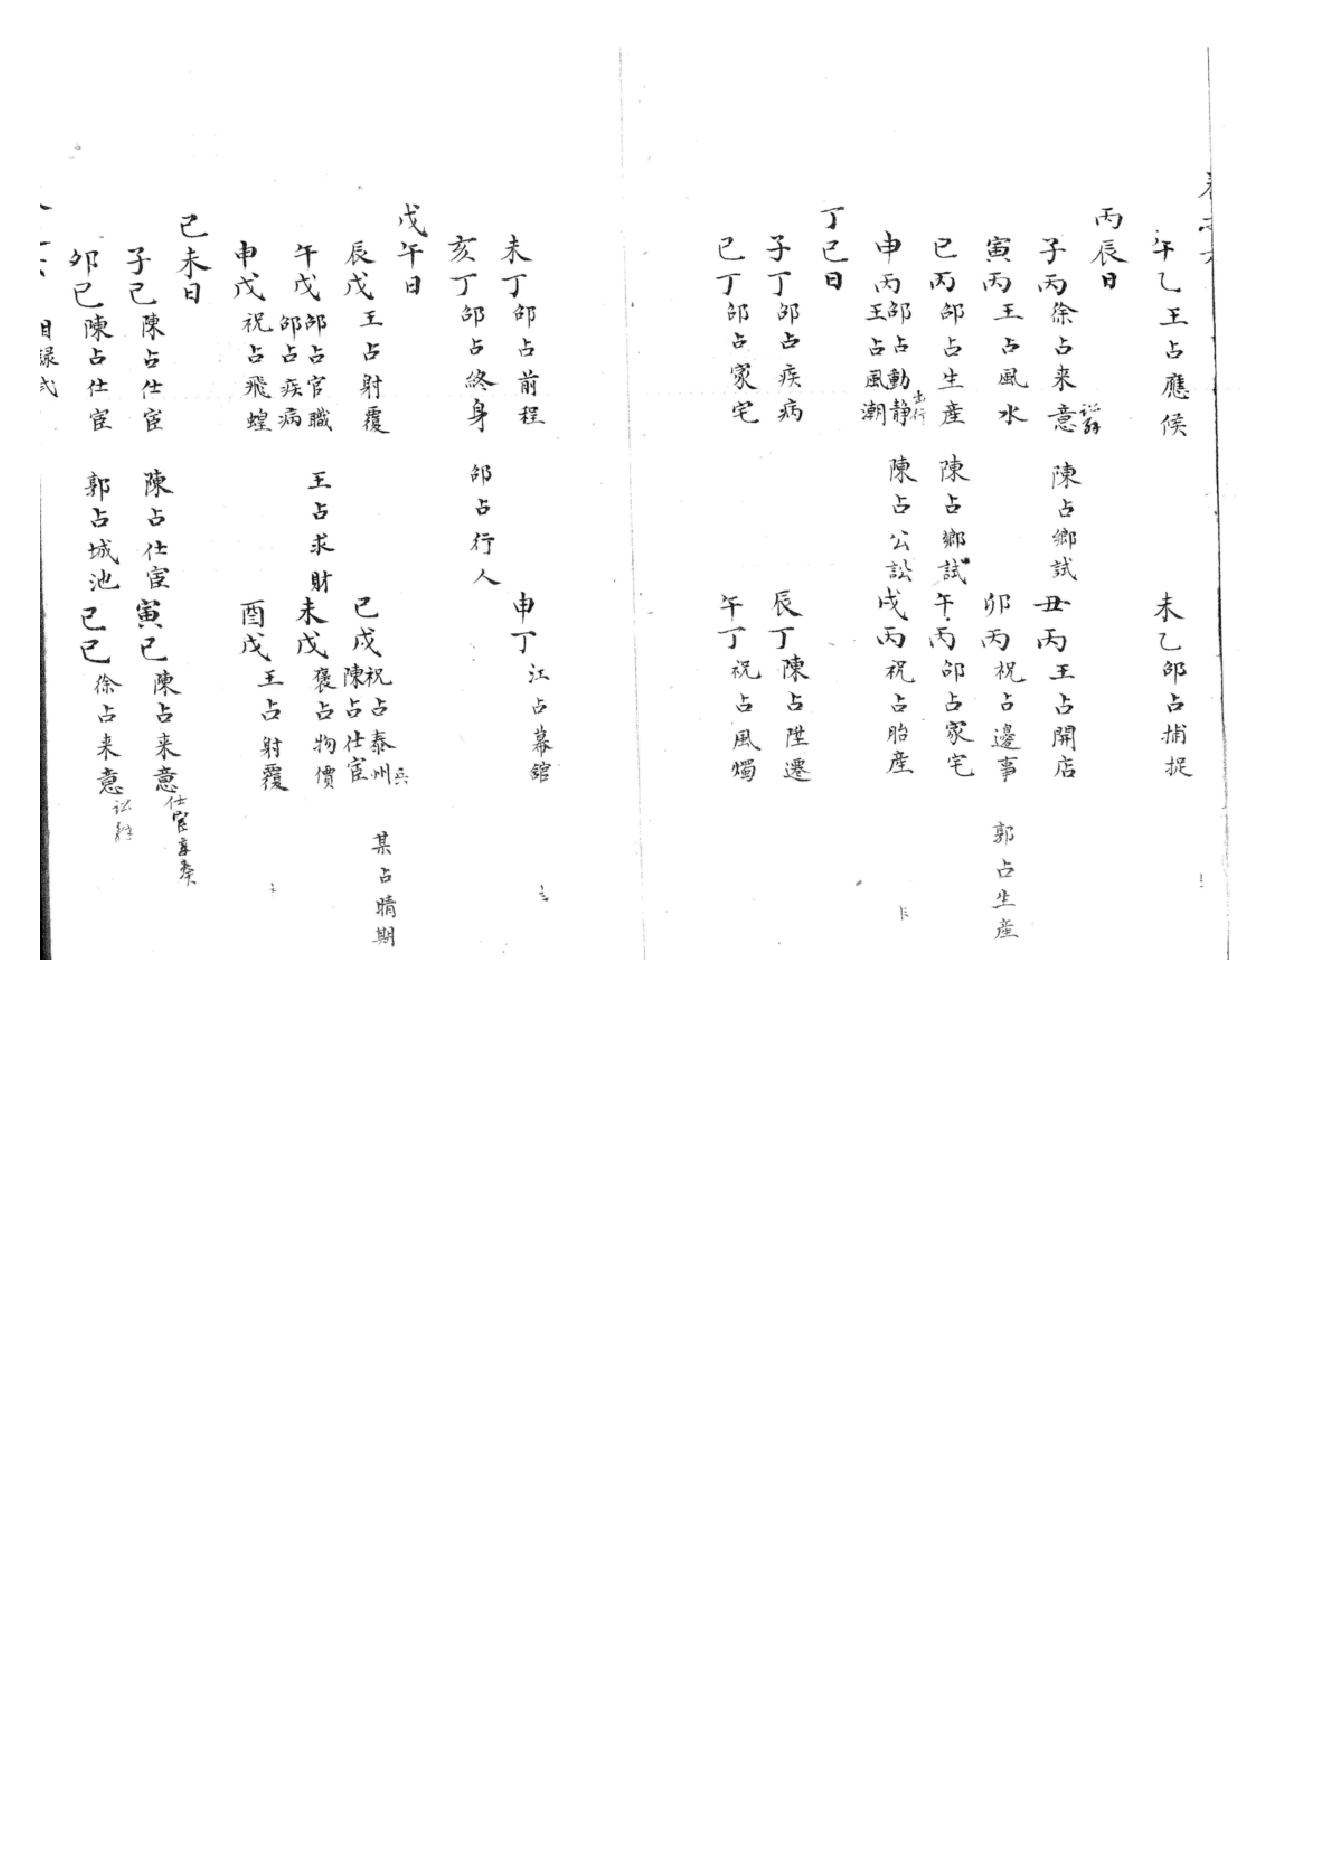 午乙王占應候　未乙邵占捕捉
丙辰日
子丙徐占来意　陳占鄉試　丑丙王占開店
寅丙王占風水　卯丙祝占邊事　郭占生産
巳丙邵占生産　陳占鄉試　午丙邵占家宅
申丙邵占動静出行　王占風潮　陳占公訟　戌丙祝占胎産
丁巳日
子丁邵占疾病　辰丁陳占陞遷
巳丁邵占家宅　午丁祝占風燭
未丁邵占前程　申丁江占幕館
亥丁邵占終身　邵占行人
戊午日
辰戊王占射覆　巳戊祝占泰州　陳占仕宦　某占晴期
午戊邵占官職　邵占疾病　王占求財　未戊占物價
申戊祝占飛蝗　酉戊王占射覆
己未日
子己陳占仕宦　陳占仕宦　寅己陳占来意仕宦
卯己陳占仕宦　郭占城池　巳己徐占来意
目録